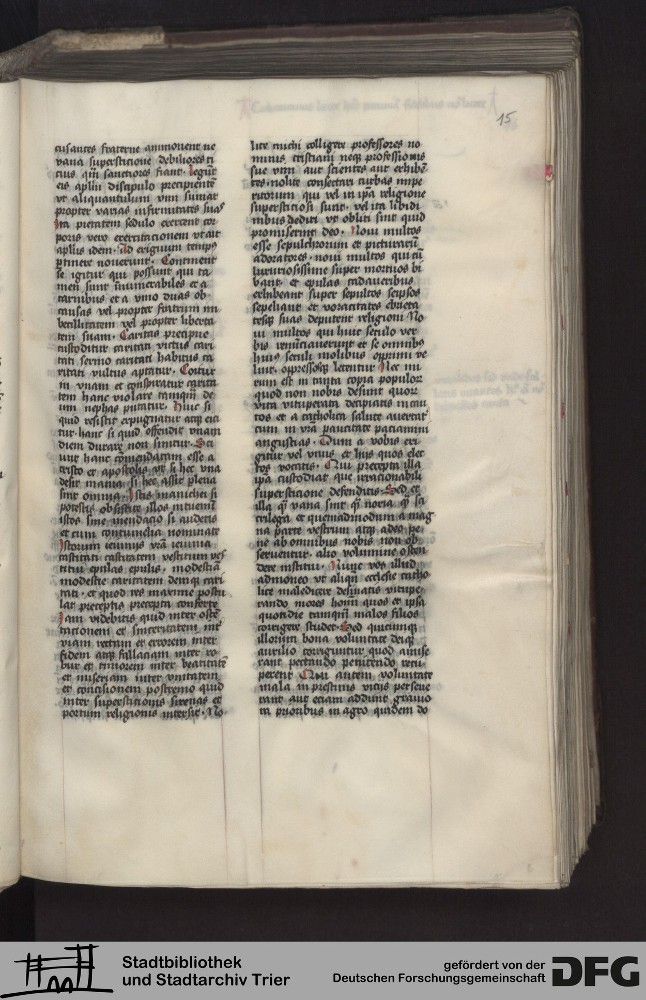 15
cusantes fraterne ammonent ne
vana supersticione debiliores ti
cius qm̄ sanctiores fiant · legūt
eis apl̄m discipulo precipiente
vt aliquantulum vini sumat
propter varias infirmitates suas
ita pietatem sedulo exercent cor
poris vero exercitacionem vt ait
apl̄us idem · ad exiguum tempus
ptinere noverunt · Continent
se igitur qui possunt qui ta
men sunt innumerabiles et a
carnibus et a vino duas ob
causas vel propter fratrum im
becillitatem vel propter liberta
tem suam · Caritas precipue
custoditur caritati victus cari
tati sermo caritati habitus ca
ritati vultus aptatur · Coitur
in vnam et conspiratur carita
tem hanc violare tamquā de
um nephas putatur · huic si
quid resistit expugnatur atqꝫ eici
tur · hanc si quid offendit vnum
diem durare non sinitur · Sci
unt hanc comendatam esse a
cristo et apostolis · vt si hec vna
desit inania · si hec assit plena
sint omnia · Istis manichei si
potestis obsistite illos intuemini
istos sine mendacio si audetis
et cum contumelia nominate
Istorum ieiuniis vrā ieiunia
castitati castitatem vestitum ves
titui epulas epulis · modestiā
modestie caritatem deniqꝫ cari
tati · et quod res maxime postu
lat preceptis precepta conferte
Iam videbitis quid inter oste
tacionem et sinceritatem int̄
viam rectam et errorem inter
fidem atqꝫ fallaciam inter ro
bur et timorem inter beatitatē
et miseriam inter vnitatem
et concisionem postremo quid
inter supersticionis sirenas et
portum religionis intersit · No
lite michi colligere professores no
minis cristiani neqꝫ professionis
sue vim aut scientes aut exhibē
tes · nolite consectari turbas impe
ritorum qui vel in ip̄a religione
supersticiosi sunt · vel ita libidi
nibus dediti vt obliti sint quid
promiserint deo · Novi multos
esse sepulchrorum et picturarū
adoratores · novi multos qui cū
luxuriosissime super mortuos bi
bant · et epulas cadaveribus
exhibeant super sepultos seip̄sos
sepeliant et voracitates ebrieta
tesqꝫ suas deputent religioni No
vi multos qui huic seculo ver
bis renūciaverunt et se omnibꝫ
huius seculi molibus opprimi ve
lint · oppressosqꝫ letentur Nec mi
rum est in tanta copia populor̄
quod non nobis desunt quor̄
vita vituperata decipiatis incau
tos et a catholica salute avertat̄
cum in vrā paucitate paciamini
angustias · Dum a vobis exi
gitur vel vnus ex hiis quos elec
tos vocatis · Qui precepta illa
ip̄a custodiat que irracionabili
supersticione defenditis · Sed et
illa qꝫ vana sint qꝫ noxia qꝫ sa
crilega et quemadmodum a mag
na parte vestrum atqꝫ adeo pe
ne ab omnibus nobis non ob
serventur · alio volumine osten
dere institui · Nunc vos illud
admoneo vt aliqn̄ ecclesie catho
lice maledicere desinatis vitupe
rando mores hoīm quos et ip̄a
quotidie tamquā malos filios
corrigere studet · Sed quicumqꝫ
illorum bona voluntate deiqꝫ
auxilio corriguntur quod amise
rant peccando penitendo recu
perent Qui autem voluntate
mala in pristinis viciis perseve
rant aut eciam addunt gravio
ra prioribus in agro quidem do
Stadtbibliothek
und Stadtarchiv Trier
gefördert von der
Deutschen Forschungsgemeinschaft
DFG